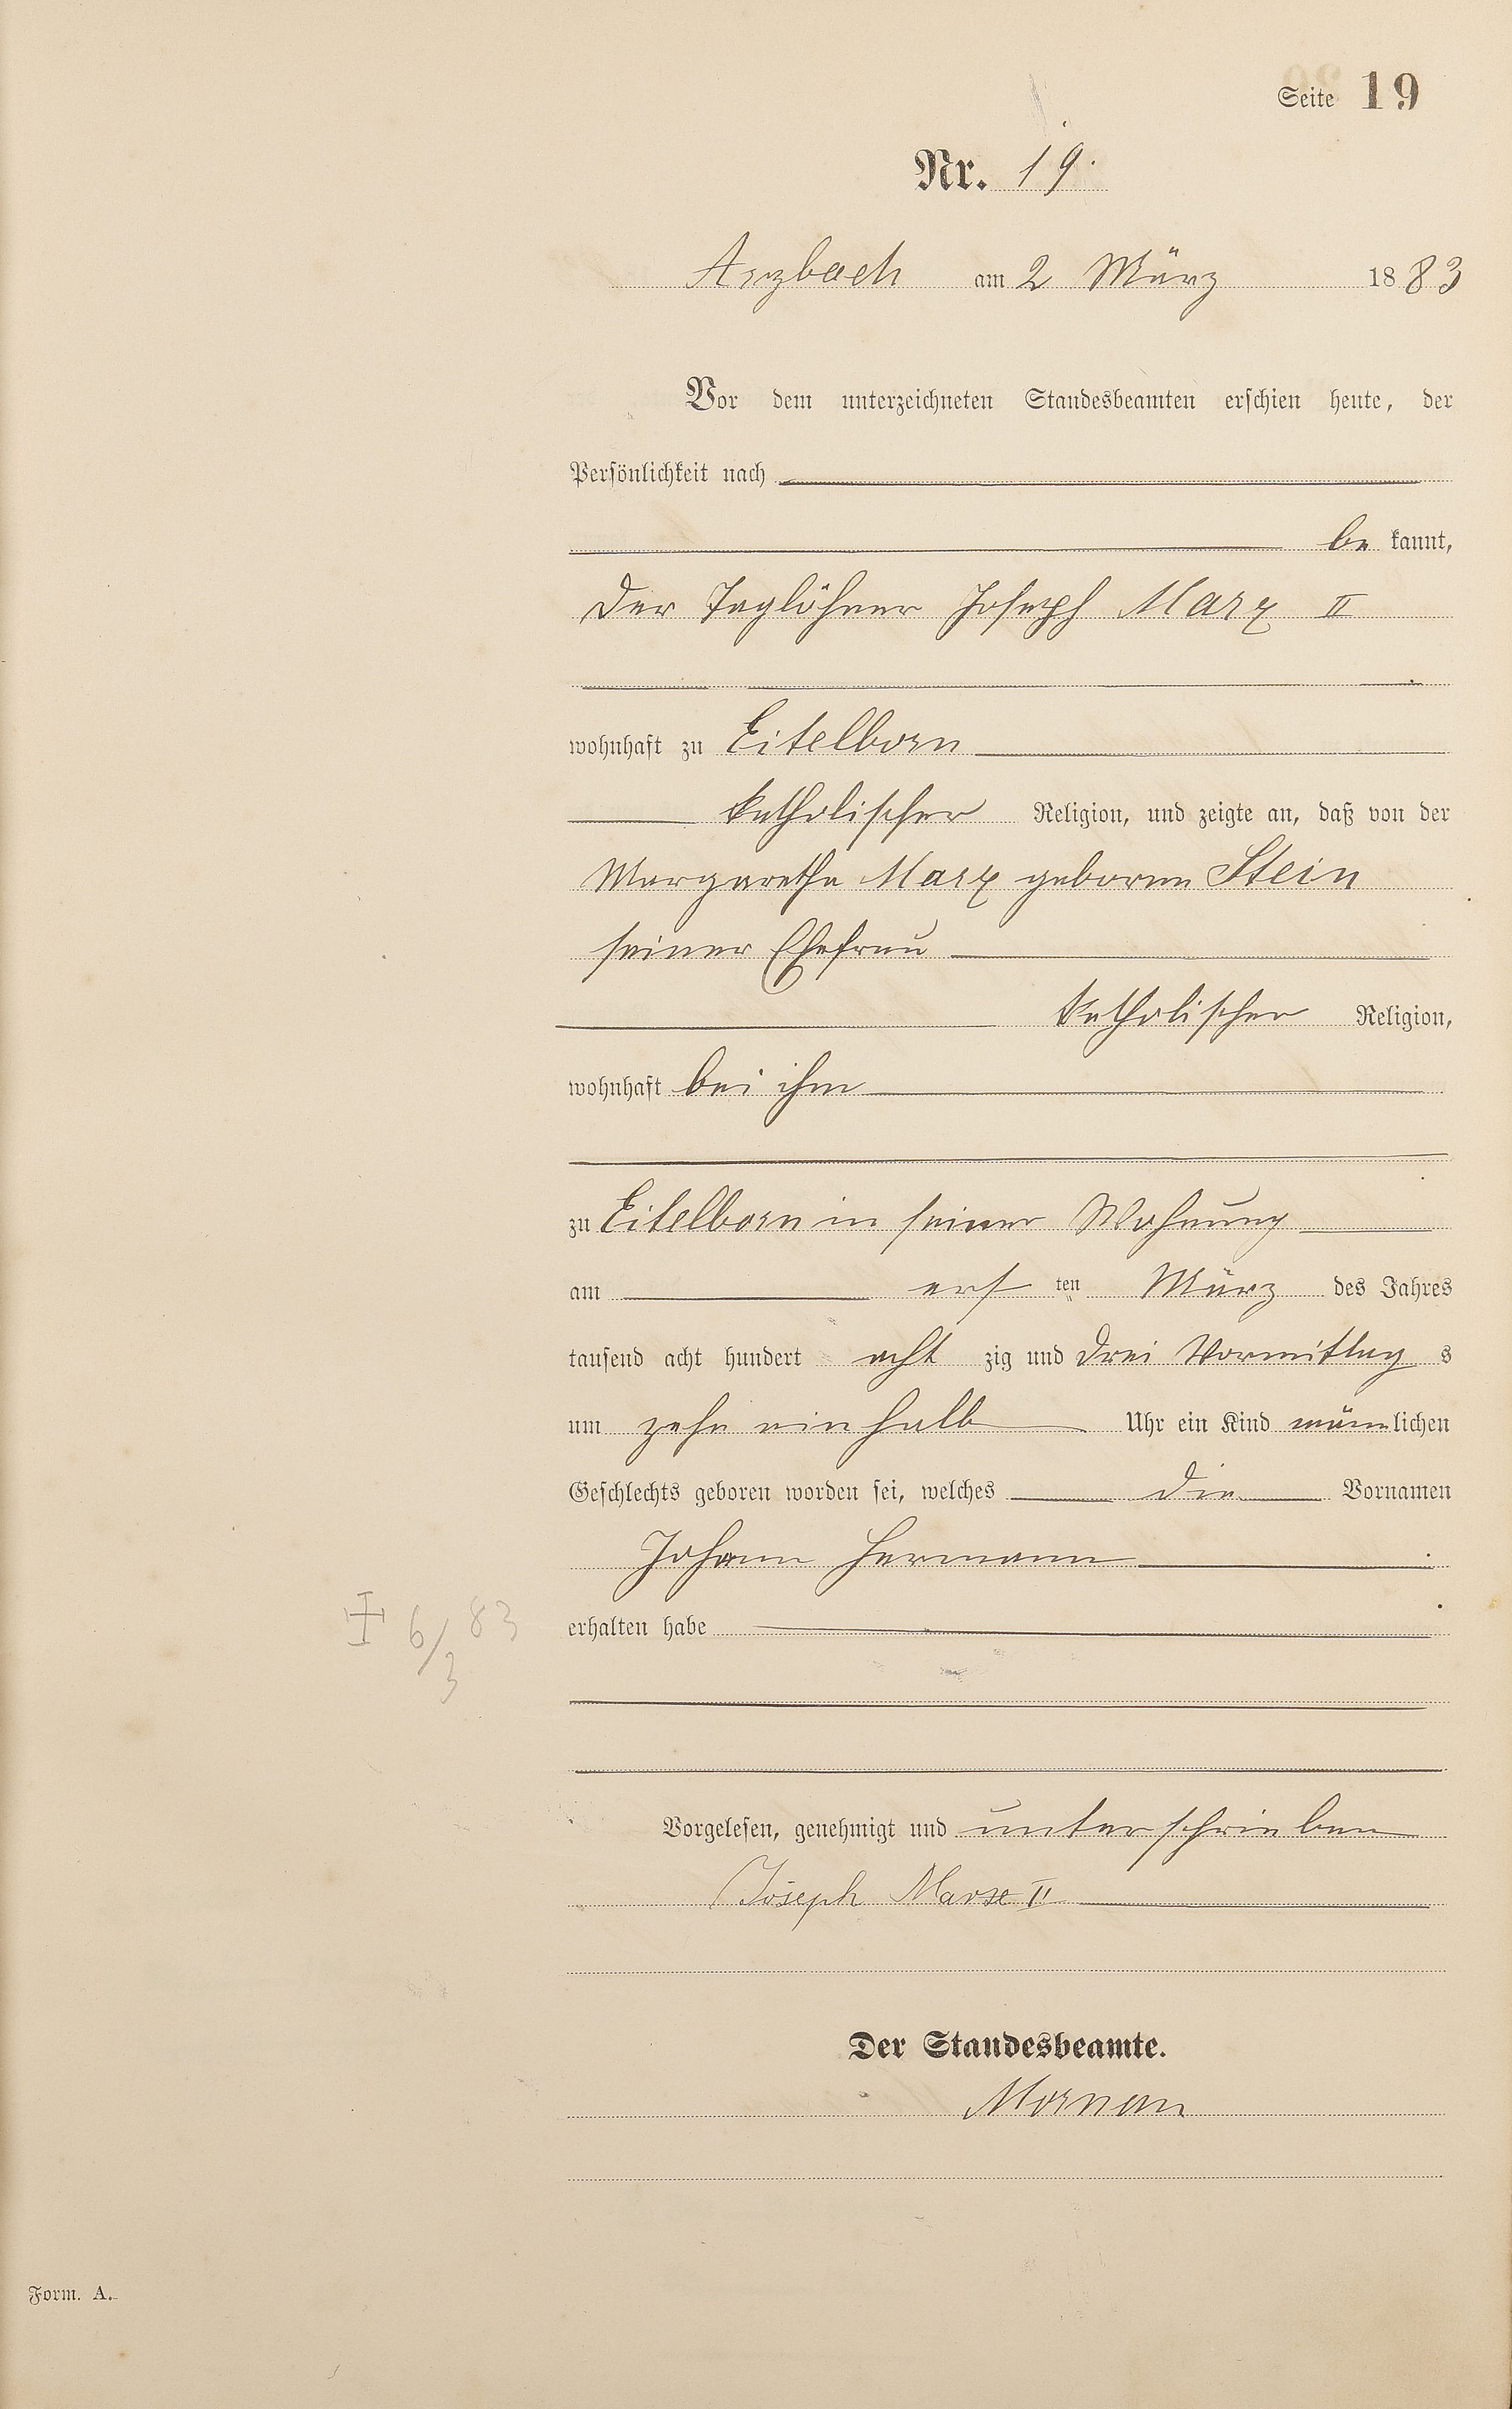 Seite 19
Nr. 19.
Arzbach am 2 März 1883
Vor dem unterzeichneten Standesbeamten erschien heute, der
Persönlichkeit nach
be kannt,
der Taglöhner Joseph Marx II
wohnhaft zu Eitelborn
katholischer Religion, und zeigte an, daß von der
Margaretha Marx geborne Stein
seiner Ehefrau
katholischer Religion,
wohnhaft bei ihm
zu Eitelborn in seiner Wohnung
am ersten März des Jahres
tausend acht hundert acht zig und drei Vormittag s
um zehn ein halb Uhr ein Kind männlichen
Geschlechts geboren worden sei, welches die Vornamen
Johann Hermann
6/3 83
erhalten habe
Vorgelesen, genehmigt und unterschrieben
Joseph Marx II
Der Standesbeamte.
Form. A.